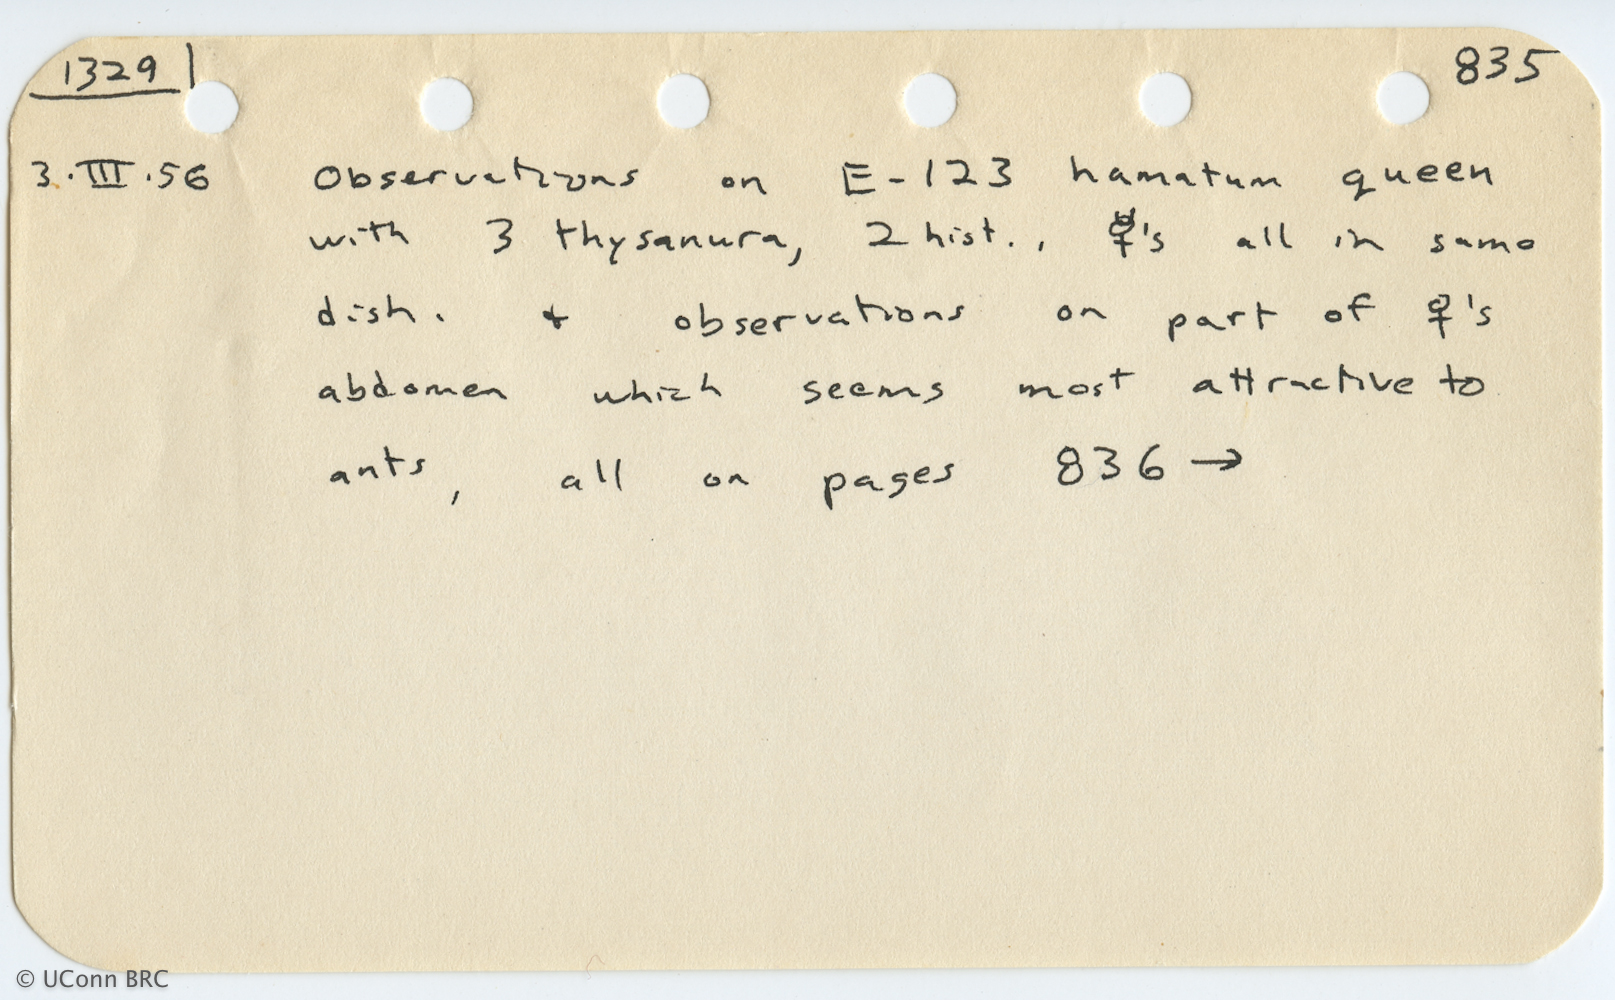 1329
835
3.III.56 Observations on E-123 hamatum queen
with 3 thysanura, 2 hist., ☿'s all in same
dish. + observations on part of ♀'s
abdomen which seems most attractive to
ants, all on pages 836 →
© UConn BRC